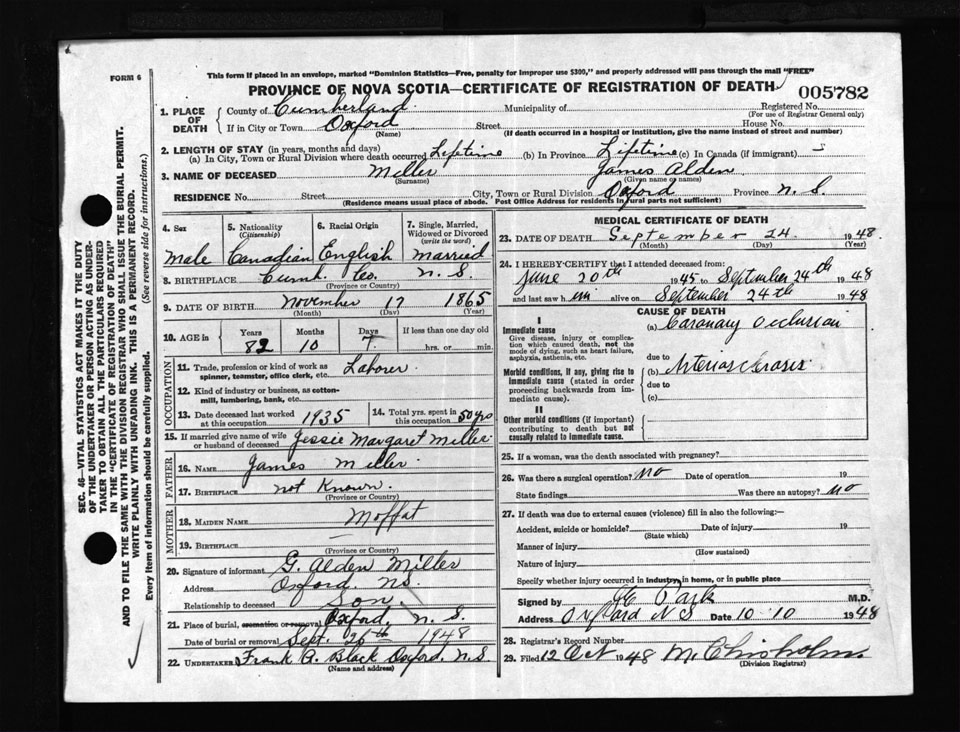 This form if placed in an envelope, marked "Dominion Statistics—Free, penalty for improper use $300," and properly addressed will pass through the mail "FREE"
FORM 6
PROVINCE OF NOVA SCOTIA—CERTIFICATE OF REGISTRATION OF DEATH
005782
1. PLACE OF DEATH
County of Cumberland Municipality of Registered No.
(For use of Registrar General only)
If in City or Town Oxford Street House No.
(Name) (If death occurred in a hospital or institution, give the name instead of street and number)
2. LENGTH OF STAY (in years, months and days)
(a) In City, Town or Rural Division where death occurred Lifetime (b) In Province Lifetime (c) In Canada (if immigrant)
3. NAME OF DECEASED Miller James Alden
(Surname) (Given name or names)
RESIDENCE No. Street City, Town or Rural Division Oxford Province N. S.
(Residence means usual place of abode. Post Office Address for residents in rural parts not sufficient)
SEC. 46—VITAL STATISTICS ACT MAKES IT THE DUTY
OF THE UNDERTAKER OR PERSON ACTING AS UNDER-
TAKER TO OBTAIN ALL THE PARTICULARS REQUIRED
IN THE "CERTIFICATE OF REGISTRATION OF DEATH"
AND TO FILE THE SAME WITH THE DIVISION REGISTRAR WHO SHALL ISSUE THE BURIAL PERMIT.
WRITE PLAINLY WITH UNFADING INK. THIS IS A PERMANENT RECORD.
Every item of information should be carefully supplied. (See reverse side for instructions.)
4. Sex
Male
5. Nationality
(Citizenship)
Canadian
6. Racial Origin
English
7. Single, Married, Widowed or Divorced
(write the word)
Married
8. BIRTHPLACE Cumb. Co. N. S.
(Province or Country)
9. DATE OF BIRTH November 17 1865
(Month) (Day) (Year)
10. AGE in
Years Months Days If less than one day old
82 10 7 hrs. or min.
OCCUPATION
11. Trade, profession or kind of work as Laborer
spinner, teamster, office clerk, etc.
12. Kind of industry or business, as cotton-
mill, lumbering, bank, etc.
13. Date deceased last worked at this occupation 1935
14. Total yrs. spent in this occupation 50 yrs
15. If married give name of wife or husband of deceased Jessie Margaret Miller
FATHER
16. NAME James Miller
17. BIRTHPLACE Not Known.
(Province or Country)
MOTHER
18. MAIDEN NAME Moffat
19. BIRTHPLACE
(Province or Country)
20. Signature of informant G. Alden Miller
Address Oxford, N.S.
Relationship to deceased Son
21. Place of burial, cremation or removal Oxford, N. S.
Date of burial or removal Sept. 26th 1948
22. UNDERTAKER Frank A. Black Oxford, N.S.
(Name and address)
MEDICAL CERTIFICATE OF DEATH
23. DATE OF DEATH September 24. 1948.
(Month) (Day) (Year)
24. I HEREBY CERTIFY that I attended deceased from:
June 20th 1945 to September 24th 1948
and last saw him alive on September 24th 1948
CAUSE OF DEATH
I
Immediate cause
Give disease, injury or complica-
tion which caused death, not the
mode of dying, such as heart failure,
asphyxia, asthenia, etc.
(a) Coronary Occlusion
due to
Morbid conditions, if any, giving rise to
immediate cause (stated in order
proceeding backwards from im-
mediate cause).
(b) Arteriosclerosis
due to
(c)
II
Other morbid conditions (if important)
contributing to death but not
causally related to immediate cause.
25. If a woman, was the death associated with pregnancy?
26. Was there a surgical operation? No Date of operation 19
State findings Was there an autopsy? No
27. If death was due to external causes (violence) fill in also the following:—
Accident, suicide or homicide? Date of injury 19
(State which)
Manner of injury
(How sustained)
Nature of injury
Specify whether injury occurred in industry, in home, or in public place
Signed by Park M.D.
Address Oxford N S Date 10-10 1948
28. Registrar's Record Number
29. Filed 12 Oct 1948 M. Chisholm
(Division Registrar)